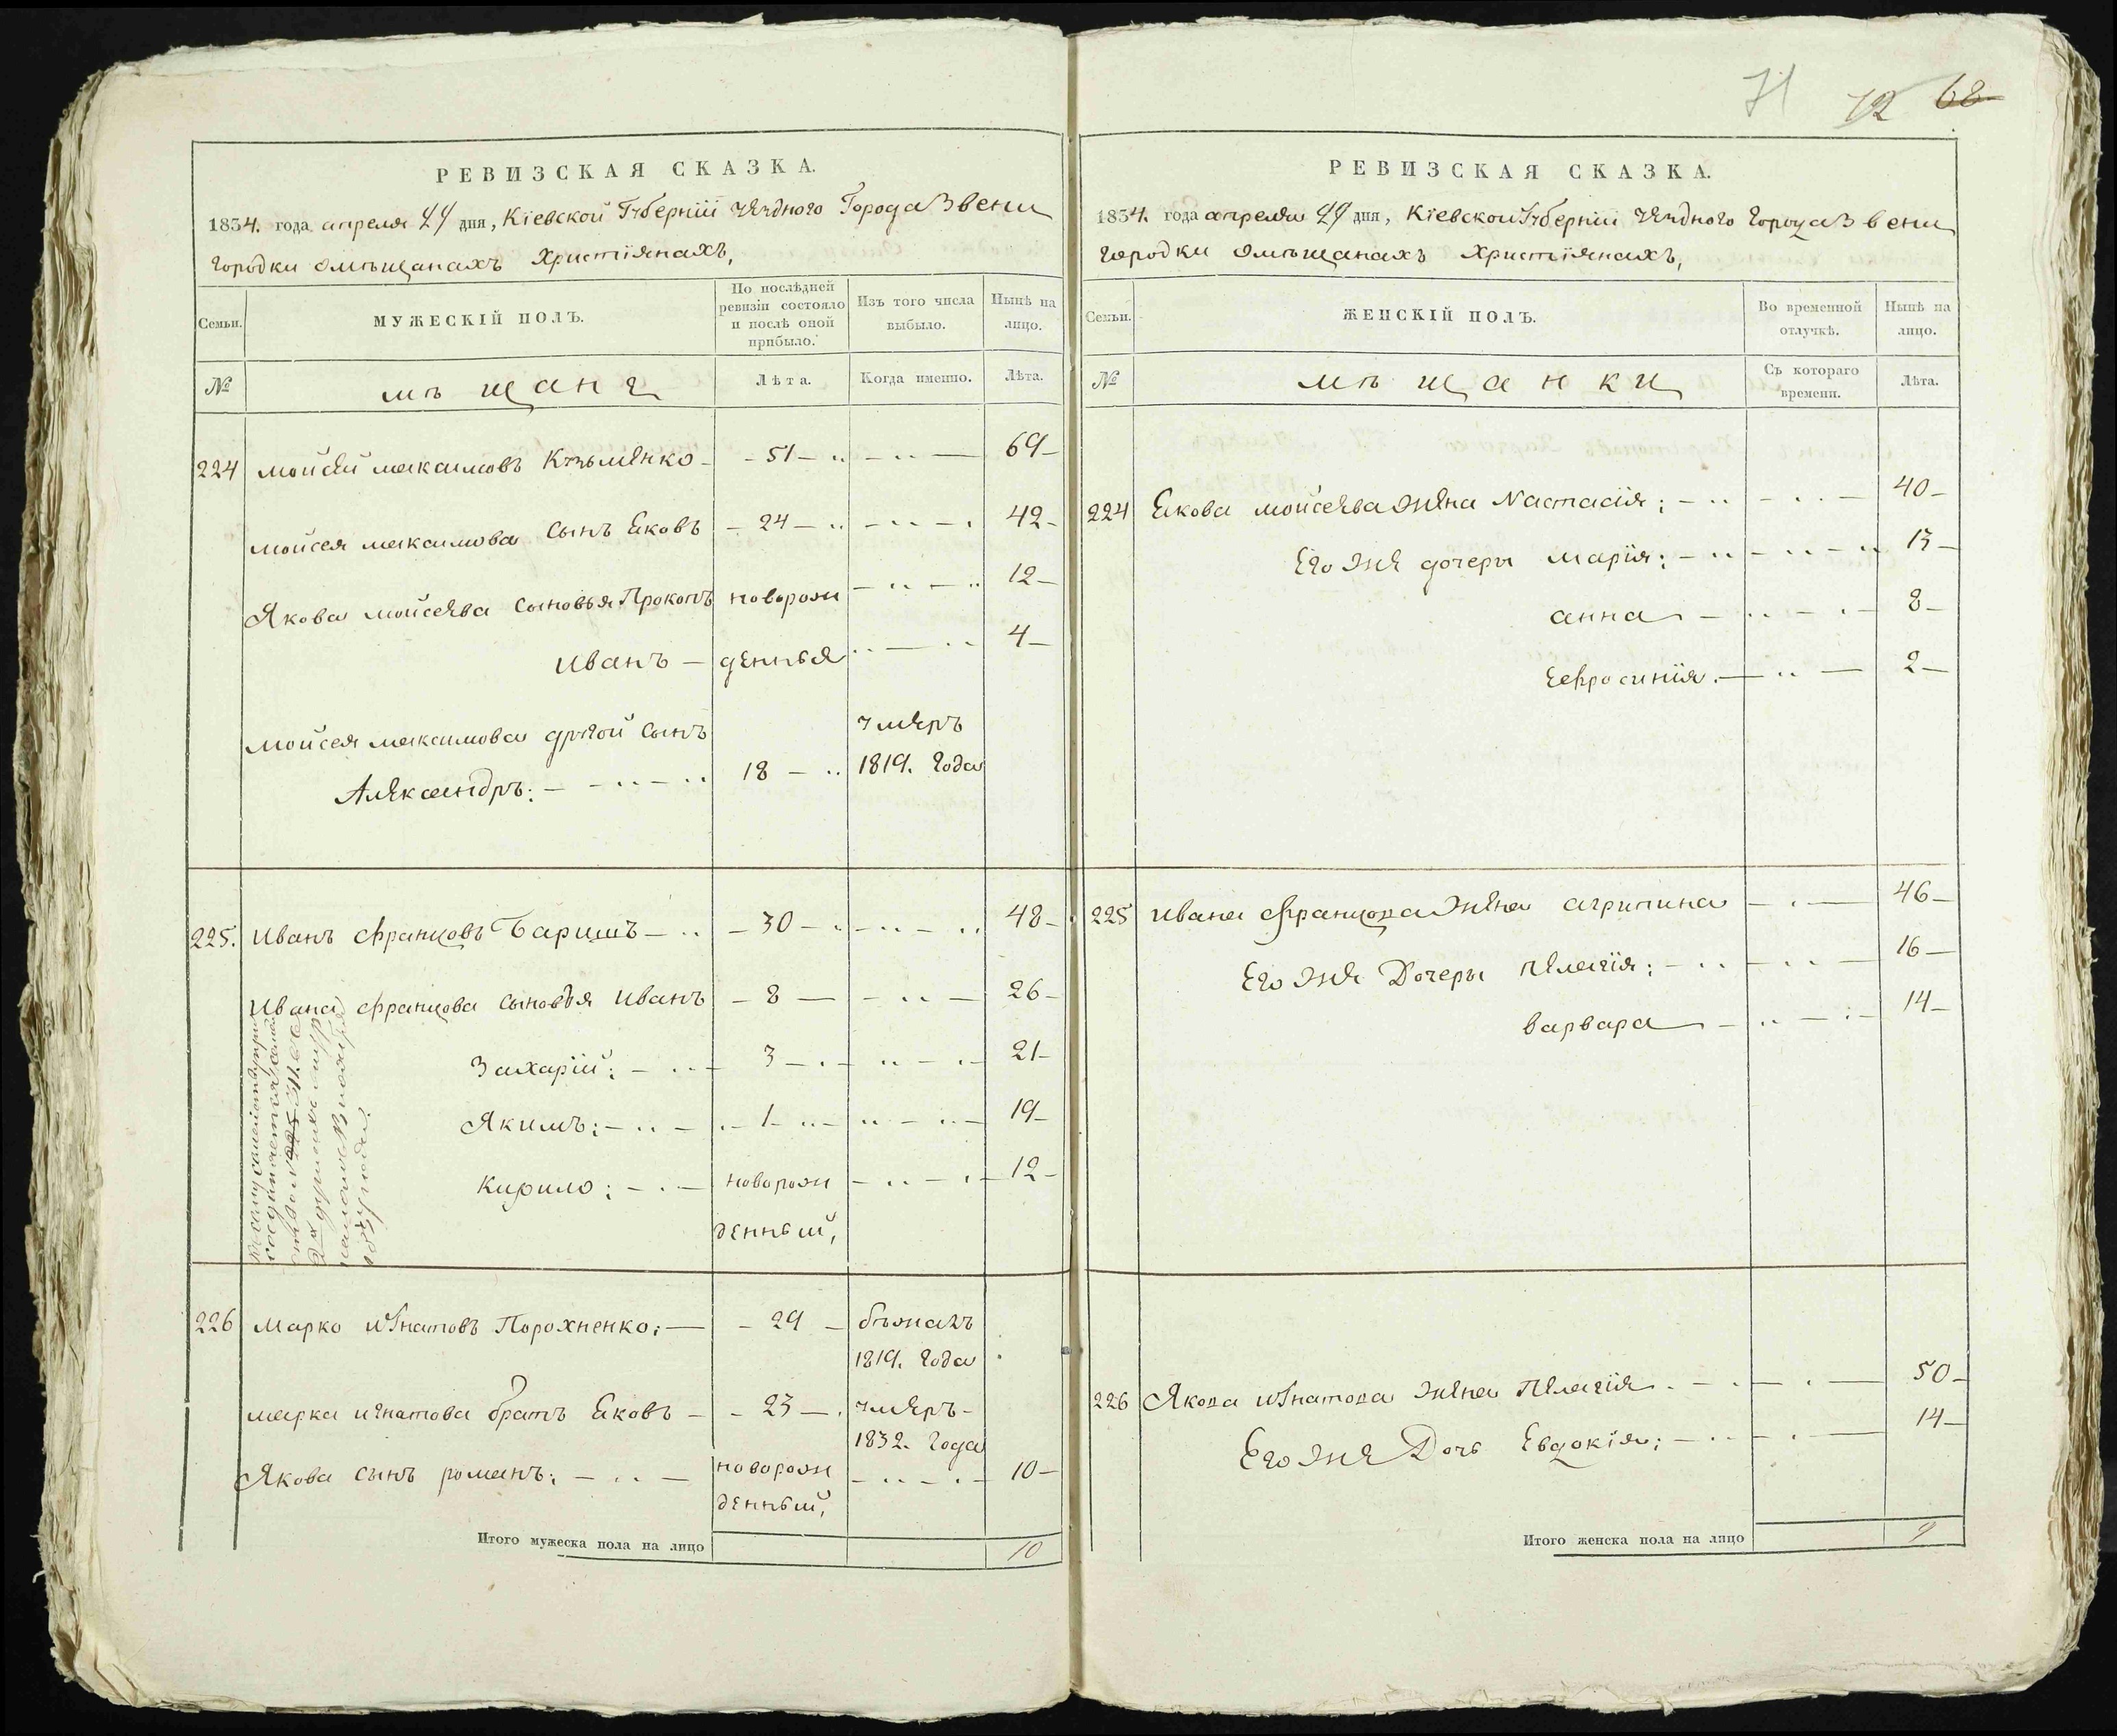 71 72 68
РЕВИЗСКАЯ СКАЗКА.
1834. года апреля 24 дня, Кіевской Губерніи уезднаго Города Звени
городки о мѣщанахъ Христіянахъ,
Семьи.
МУЖЕСКІЙ ПОЛЪ.
По послѣдней ревизіи состояло и послѣ оной прибыло.
Изъ того числа выбыло.
Нынѣ на лицо.
№
мѣщане
Лѣта.
Когда именно.
Лѣта.
224 Мойсей максимовъ Кузьменко 51 69
Мойсея максимова сынъ Яковъ 24 42
Якова мойсеева сыновья Прокопъ новорож 12
Иванъ денныя 4
Мойсея максимова другой сынъ умеръ
Александръ: 18 1819. года
225. Иванъ францовъ Баришъ 30 48
Ивана францова сыновья Иванъ 8 26
Захарій: 3 21
Якимъ: 1 19
Кирило: новорож 12
денный,
226 Марко игнатовъ Порохненко: 29 бѣжалъ
1819. года
Марка игнатова братъ Яковъ 23 умеръ
1832. года
Якова сынъ романъ: новорож 10
денный,
Итого мужеска пола на лицо 10
РЕВИЗСКАЯ СКАЗКА.
1834. года апреля 24 дня, Кіевской Губерніи уезднаго города Звени
городки о мѣщанахъ Христіянахъ,
Семьи.
ЖЕНСКІЙ ПОЛЪ.
Во временной отлучкѣ.
Нынѣ на лицо.
№
мѣщанки
Съ котораго времени.
Лѣта.
224 Якова мойсеева жена Настасія: 40
Его же дочеры марія: 13
анна 8
Ефросинія. 2
225 Ивана францова жена агрипина 46
Его же Дочеры пелагія: 16
варвара 14
226 Якова игнатова жена Пелагія. 50
Его же Дочь Евдокія: 14
Итого женска пола на лицо 9